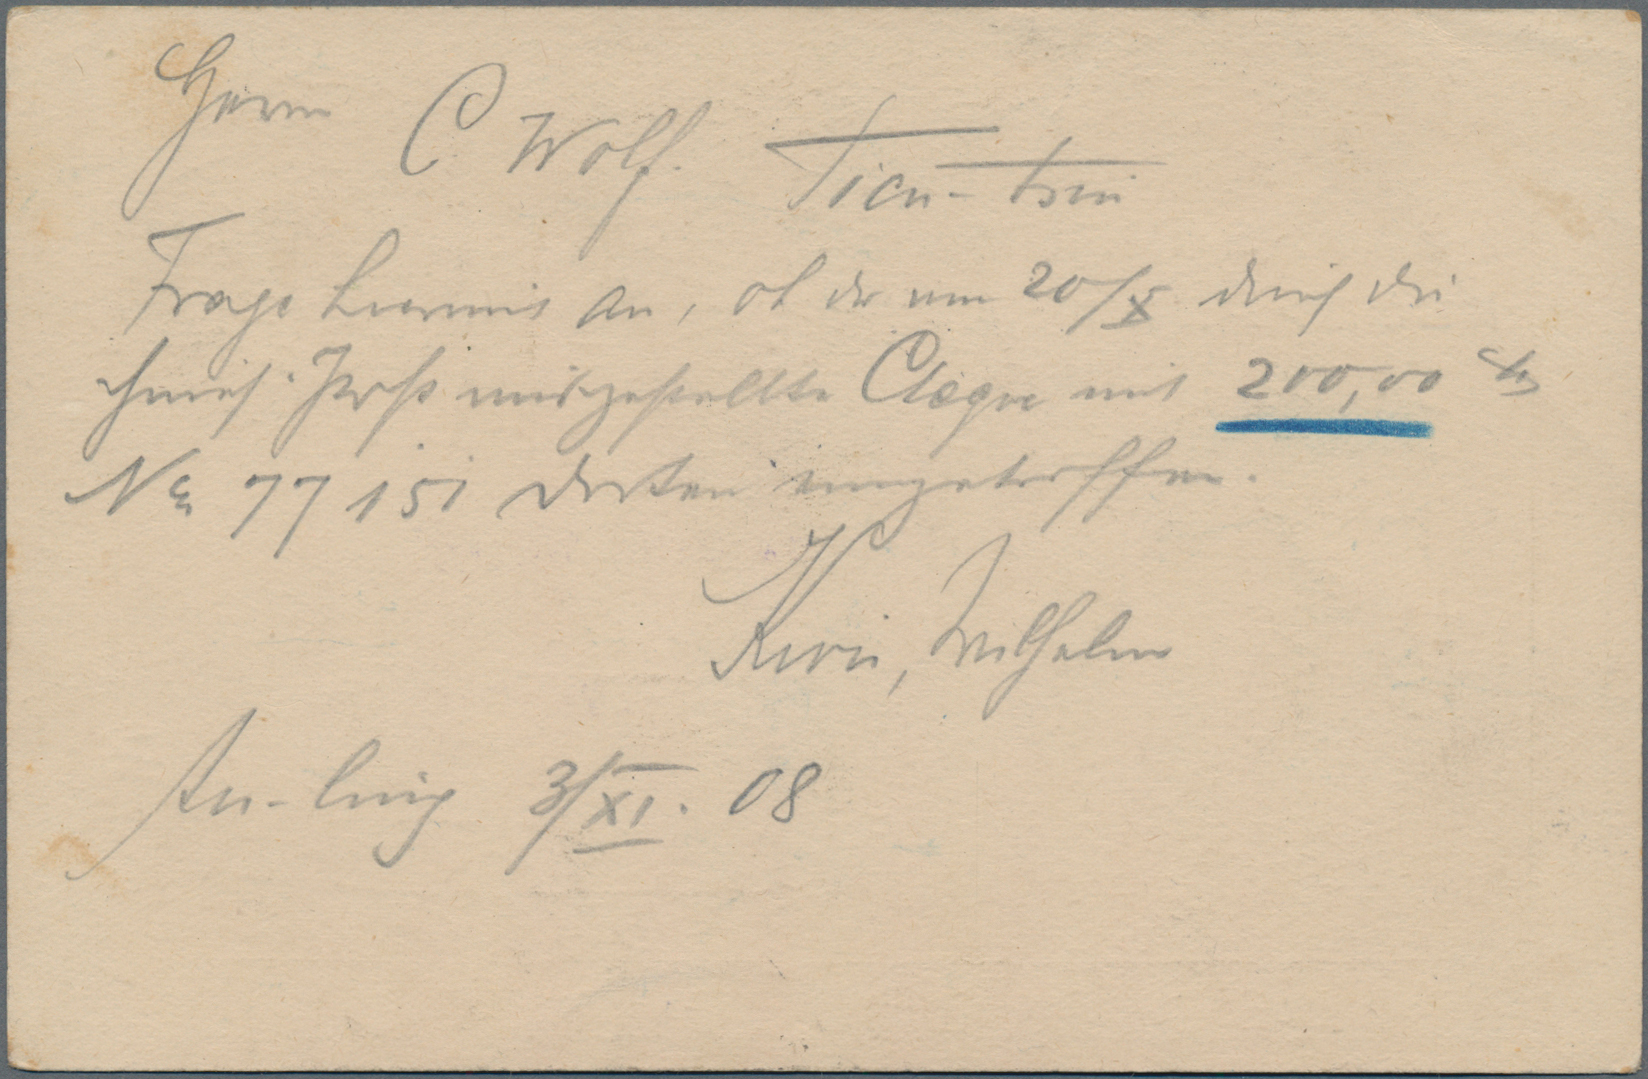 Herrn C Wolf. Tien-tsin
Frage hiermit an, ob der am 20/X durch die
chines. Post ausgestellte Cheque mit 200,00
No 77151 dorten eingetroffen.
Wilhelm
An-ling 3/XI. 08